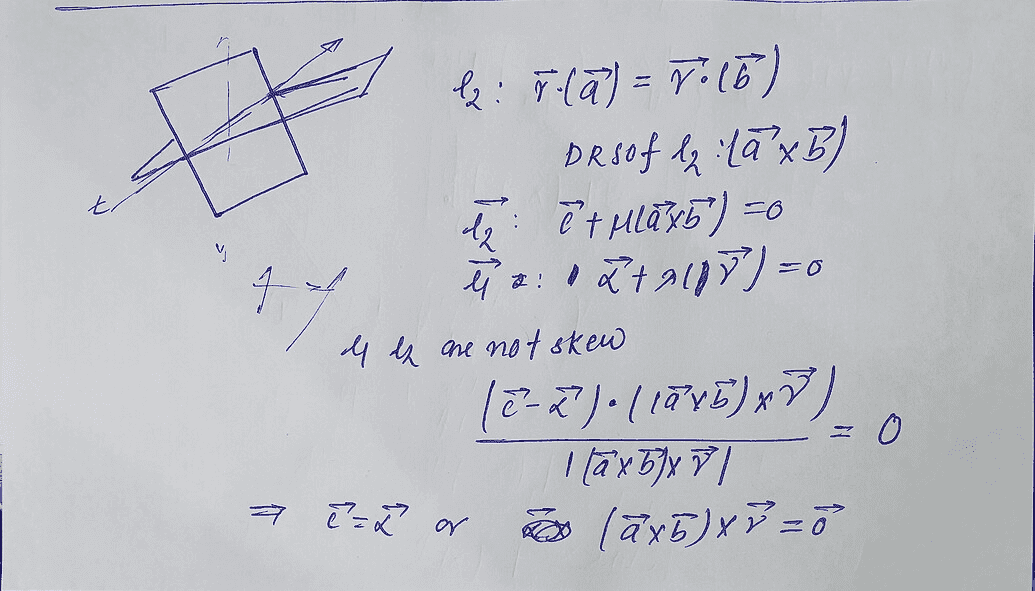 l₂ : r⃗·(a⃗) = r⃗·(b⃗)
DRS of l₂ : (a⃗ × b⃗)
l⃗₂ : c⃗ + μ(a⃗×b⃗) = 0
l⃗₁ : α⃗ + λ(γ⃗) = 0
l₁ l₂ are not skew
(c⃗ - α⃗)·((a⃗×b⃗) × γ⃗)
―――――――――― = 0
|(a⃗×b⃗)×γ⃗|
⇒ c⃗ = α⃗ or (a⃗×b⃗) × γ⃗ = 0⃗